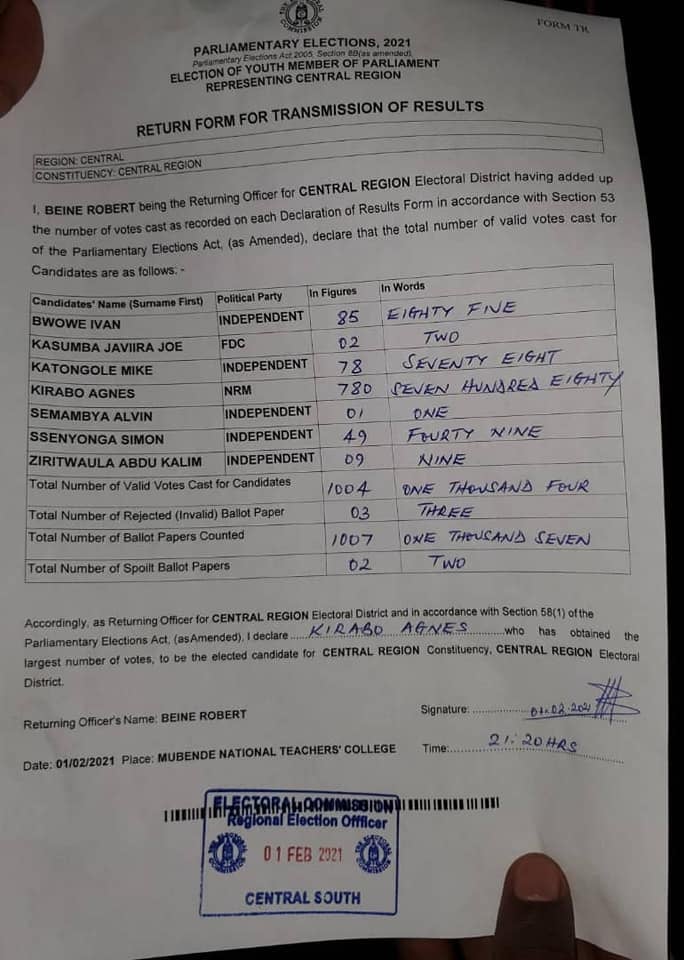 THE ELECTORAL COMMISSION
FORM TR
PARLIAMENTARY ELECTIONS, 2021
Parliamentary Elections Act 2005, Section 8B(as amended).
ELECTION OF YOUTH MEMBER OF PARLIAMENT
REPRESENTING CENTRAL REGION
RETURN FORM FOR TRANSMISSION OF RESULTS
REGION: CENTRAL
CONSTITUENCY: CENTRAL REGION
I, BEINE ROBERT being the Returning Officer for CENTRAL REGION Electoral District having added up
the number of votes cast as recorded on each Declaration of Results Form in accordance with Section 53
of the Parliamentary Elections Act, (as Amended), declare that the total number of valid votes cast for
Candidates are as follows: -
Candidates' Name (Surname First) Political Party In Figures In Words
BWOWE IVAN INDEPENDENT 85 EIGHTY FIVE
KASUMBA JAVIIRA JOE FDC 02 TWO
KATONGOLE MIKE INDEPENDENT 78 SEVENTY EIGHT
KIRABO AGNES NRM 780 SEVEN HUNDRED EIGHTY
SEMAMBYA ALVIN INDEPENDENT 01 ONE
SSENYONGA SIMON INDEPENDENT 49 FOURTY NINE
ZIRITWAULA ABDU KALIM INDEPENDENT 09 NINE
Total Number of Valid Votes Cast for Candidates 1004 ONE THOUSAND FOUR
Total Number of Rejected (Invalid) Ballot Paper 03 THREE
Total Number of Ballot Papers Counted 1007 ONE THOUSAND SEVEN
Total Number of Spoilt Ballot Papers 02 TWO
Accordingly, as Returning Officer for CENTRAL REGION Electoral District and in accordance with Section 58(1) of the
Parliamentary Elections Act, (asAmended), I declare....KIRABO AGNES....who has obtained the
largest number of votes, to be the elected candidate for CENTRAL REGION Constituency, CENTRAL REGION Electoral
District.
Returning Officer's Name: BEINE ROBERT Signature: 01.02.2021
Date: 01/02/2021 Place: MUBENDE NATIONAL TEACHERS' COLLEGE Time: 21:20HRS
ELECTORAL COMMISSION
Regional Election Offficer
THE ELECTORAL COMMISSION 01 FEB 2021 THE ELECTORAL COMMISSION
CENTRAL SOUTH